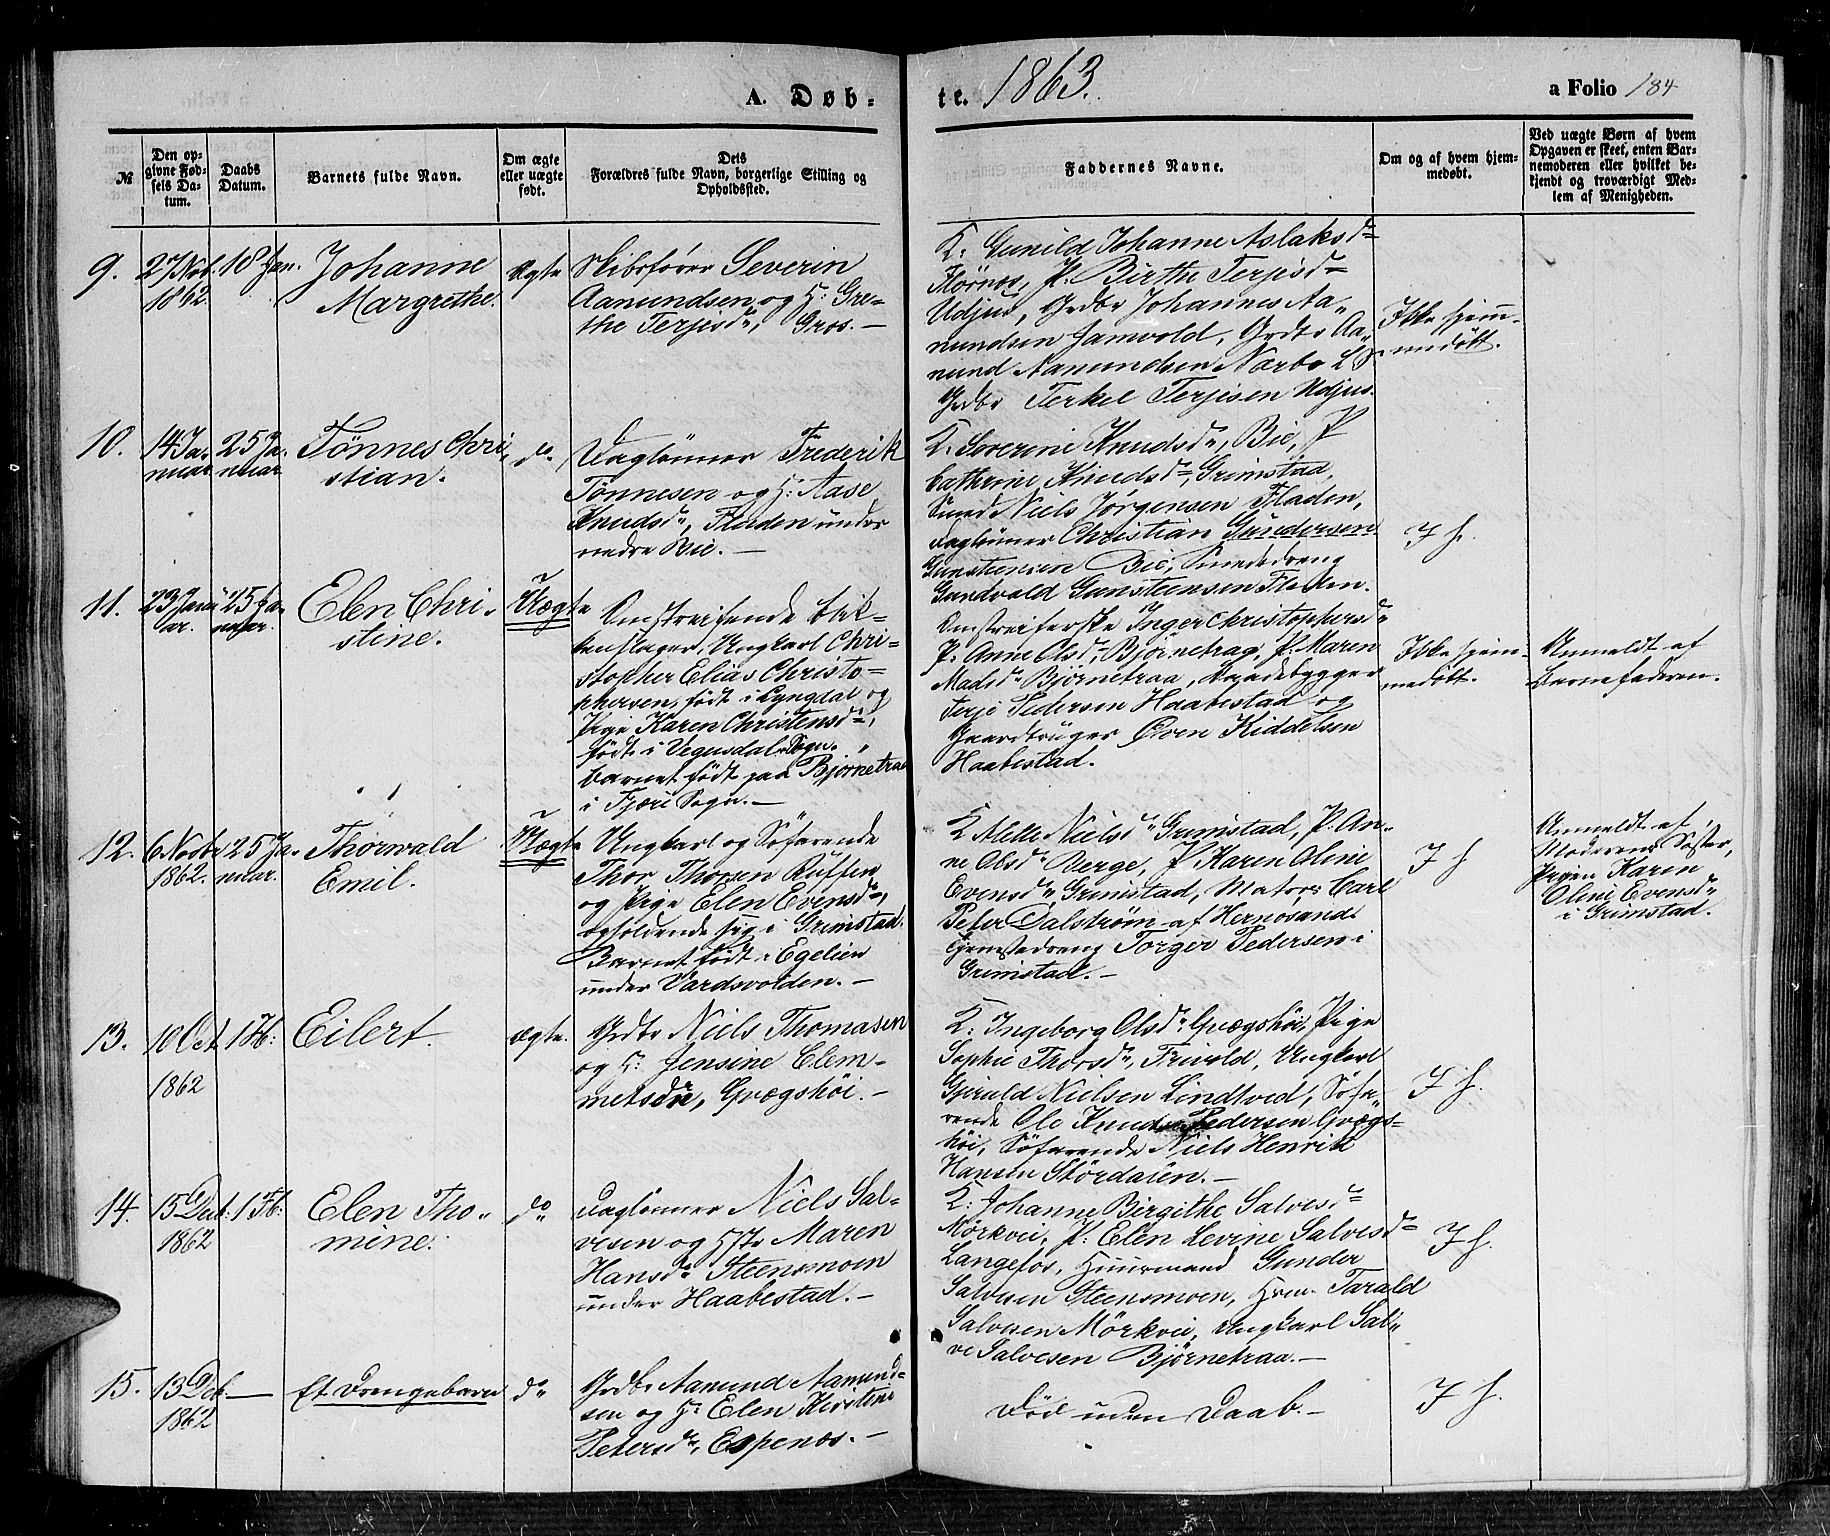 A. Døb-
te. 1863.
a Folio 184
№
Den op-
givne Fød-
sels Da-
tum.
Daabs
Datum.
Barnets fulde Navn.
Om ægte
eller uægte
født.
Dets
Forældres fulde Navn, borgerlige Stilling og
Opholdssted.
Faddernes Navne.
Om og af hvem hjem-
medøbt.
Ved uægte Børn af hvem
Opgaven er skeet, enten Bar-
nemoderen eller hvilket be-
kjendt og troværdigt Med-
lem af Menigheden.
9.
27 Nov.
1862
18 Jan.
Johanne
Margrethe.
ægte
Skibsfører Severin
Aamundsen og H: Gre-
the Terjesdr, Gros.-
K: Gunild Johanne Aslaksdr
P. Birthe Terjesdr
Udjus, Grdbr Johannes Aa-
mundsen Jamvold, Grdbr Aa-
mund Aamundsen Nærbo
Grdbr Terkel Terjesen Udjus.
Ikke hjem-
medøbt.
10.
14 Ja-
nuar
25 Ja-
nuar.
Tønnes Chri-
stian.
do
Daglønner Frederik
Tønnesen og H: Aase
Knudsdr, Fladen under
nedre Bie.-
K. Severine Knudsdr, Bie, P
Cathrine Knudsdr, Grimstad,
Smed Niels Jørgensen Fladen,
Daglønner Christian Gundersen
Gunsteinsen Bie, Smededreng
Gundvald Gunsteensen Fladen.
J h.
11.
23 Janu
ar.
25 Ja-
nuar.
Elen Chri-
stine.
Uægte
Omstreifende Blik-
kenslager, Ungkarl Chri-
stopher Elias Christo-
phersen, født i Lyngdal og
Pige Karen Christensdr,
født i Vegusdals Sogn.
Barnet født paa Bjørnetraa
i Fjære Sogn.-
Omstreiferske Inger Christophersdr
P. Anne Olsdr, Bjørnetrag, P. Maren
Madsdr Bjørnetraa,
Terje Pedersen Haabestad og
Gaardbruger Even Kiddelsen
Haabestad.
Ikke hjem-
medøbt.
Anmeldt af
Barnefaderen.
12.
6 Novbr
1862.
25 Ja-
nuar.
Thorwald
Emil.
Uægte
Ungkarl og Søfarende
Thor Thorsen Ruffen
og Pige Elen Evensdr,
opholdende sig i Grimstad.
Barnet født i Egelien
under Vardsvolden.-
K Mette Nielsdr Grimstad, P. An-
ne Olsdr Berge, P Karen Oline
Evensdr Grimstad, Matros Carl
Peter Dalstrøm af Hernosand
Tjenestedreng Torger Pedersen i
Grimstad.-
J h
Anmeldt af
Moderens Søster,
Pigen Karen
Oline Evensdr
i Grimstad.
13.
10 Oct
1862
1 Fb:
Eilert.
ægte.
Grdbr Niels Thomasen
og H. Jensine Clem-
metsdr, Grægshøi.-
K: Ingeborg Olsdr Grægshøi, Pige
Sophie Thorsdr, Frivold, Ungkarl
Gjeruld Nielsen Lindtved, Søfa-
rende Ole Knud Pedersen Grægs-
høi, Søfarende Niels Henrik
Hansen Størdalen.-
J h.
14.
15 Decb:
1862
1 Fb:
Elen Tho-
mine.
do
Daglønner Niels Sal-
vesen og Hstr Maren
Hansdr Steensmoen
under Haabestad.-
K: Johanne Birgithe Salvesdr
Mørkvei, P. Elen Levine Salvesdr
Langefos, Huusmand Gunder
Salvesen Steensmoen, Hsm. Tarald
Salvesen Mørkvei, Ungkarl Sal-
ve Salvesen Bjørnetraa.-
J h.
15.
13 Dcb
1862
—
Et Drengebarn
do
Grdbr Aamund Aamund-
sen og H: Elen Kirstine
Petersdr, Espenæs.-
Død uden Daab.-
J h.